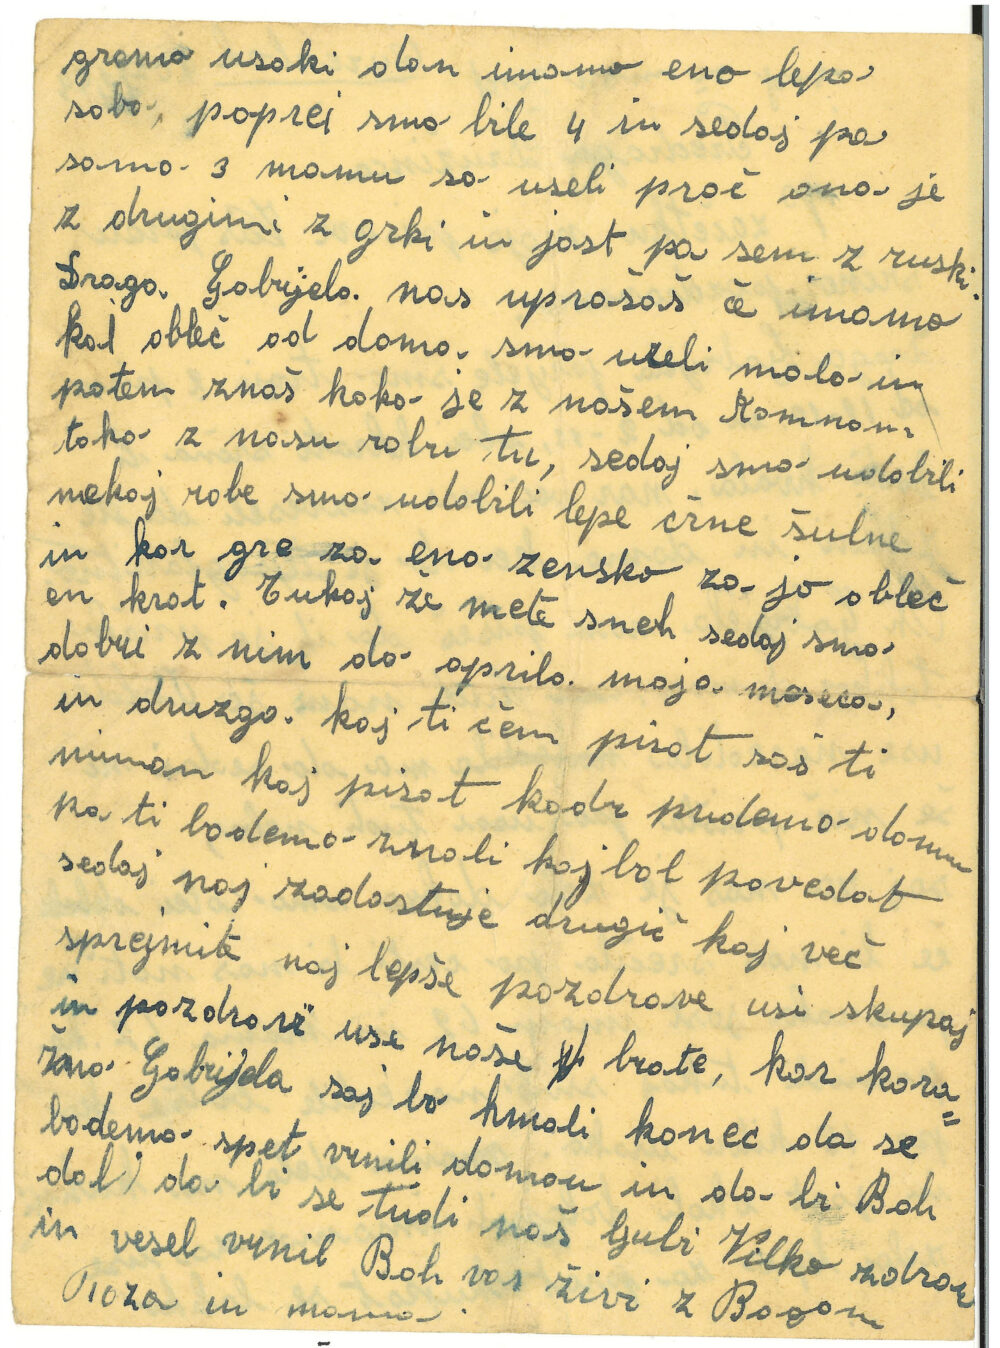 gremo usaki dan imamo eno lepo
sobo, poprei smo bile 4 in sedaj pa
samo 3 mamu so useli proč ona je
z drugimi z grki in jast pa sem z ruski.
Draga Gabrijela nas uprašaš če imamo
kaj obleč od doma smo uzeli malo in
potem znaš kako je z našem Kamnam
tako z našu robu tu, sedaj smo udobili
nekaj robe smo udobili lepe črne šulne
in kar gre za eno žensko za jo obleč
en krat. Tukaj že mete sneh sedaj smo
dobri z nim do aprila maja meseca,
in druzga kaj ti čem pisat saš ti
nimam kaj pisat kadr pridemo damu
pa ti bodemo znali kaj bol povedat
sedaj naj zadostuje drugič kaj več
sprejmite naj lepše pozdrave usi skupaj
in pozdravi use naše brate, kar kora=
žno Gabrijela saj bo hmali konec da se
bodemo spet vrnili domou in da bi Boh
dal da bi se tudi naš ljubi Vilko zdrau
in vesel vrnil Boh vas živi z Bogom
Roza in mama